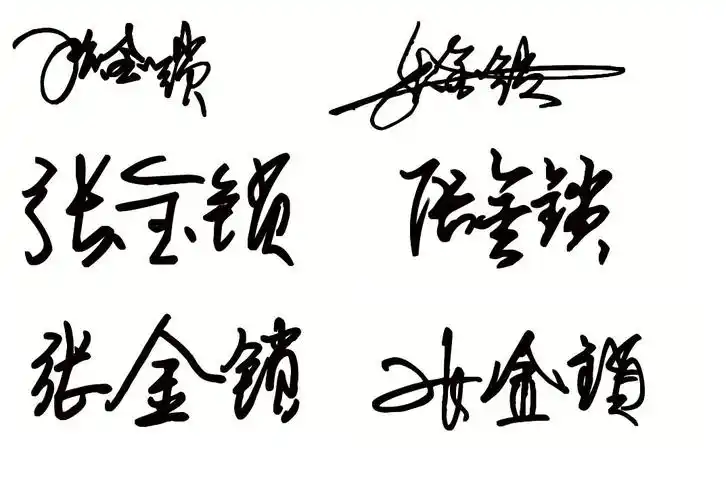 张金锁 张金锁
张金锁 张金锁
张金锁 张金锁